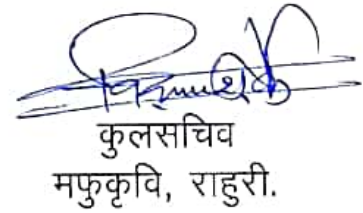 कुलसचिव
मफुकृवि, राहुरी.